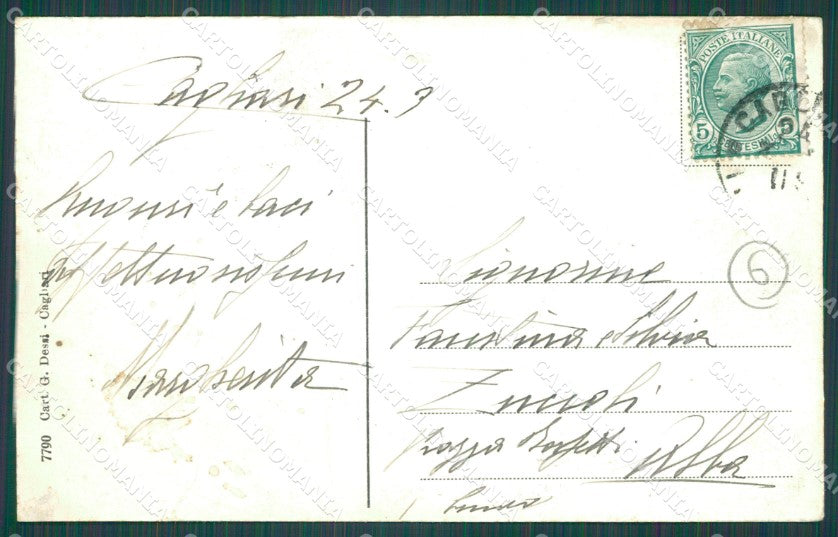 Cagliari 24.3
Auguri e baci
affettuosissimi
Margherita
7790 Cart. G. Dessì - Cagliari
POSTE ITALIANE
5 CENTESIMI 5
6
Signorine
Faustina e Silvia
Zuccoli
Piazza
Alba
Cuneo
CARTOLINOMANIA